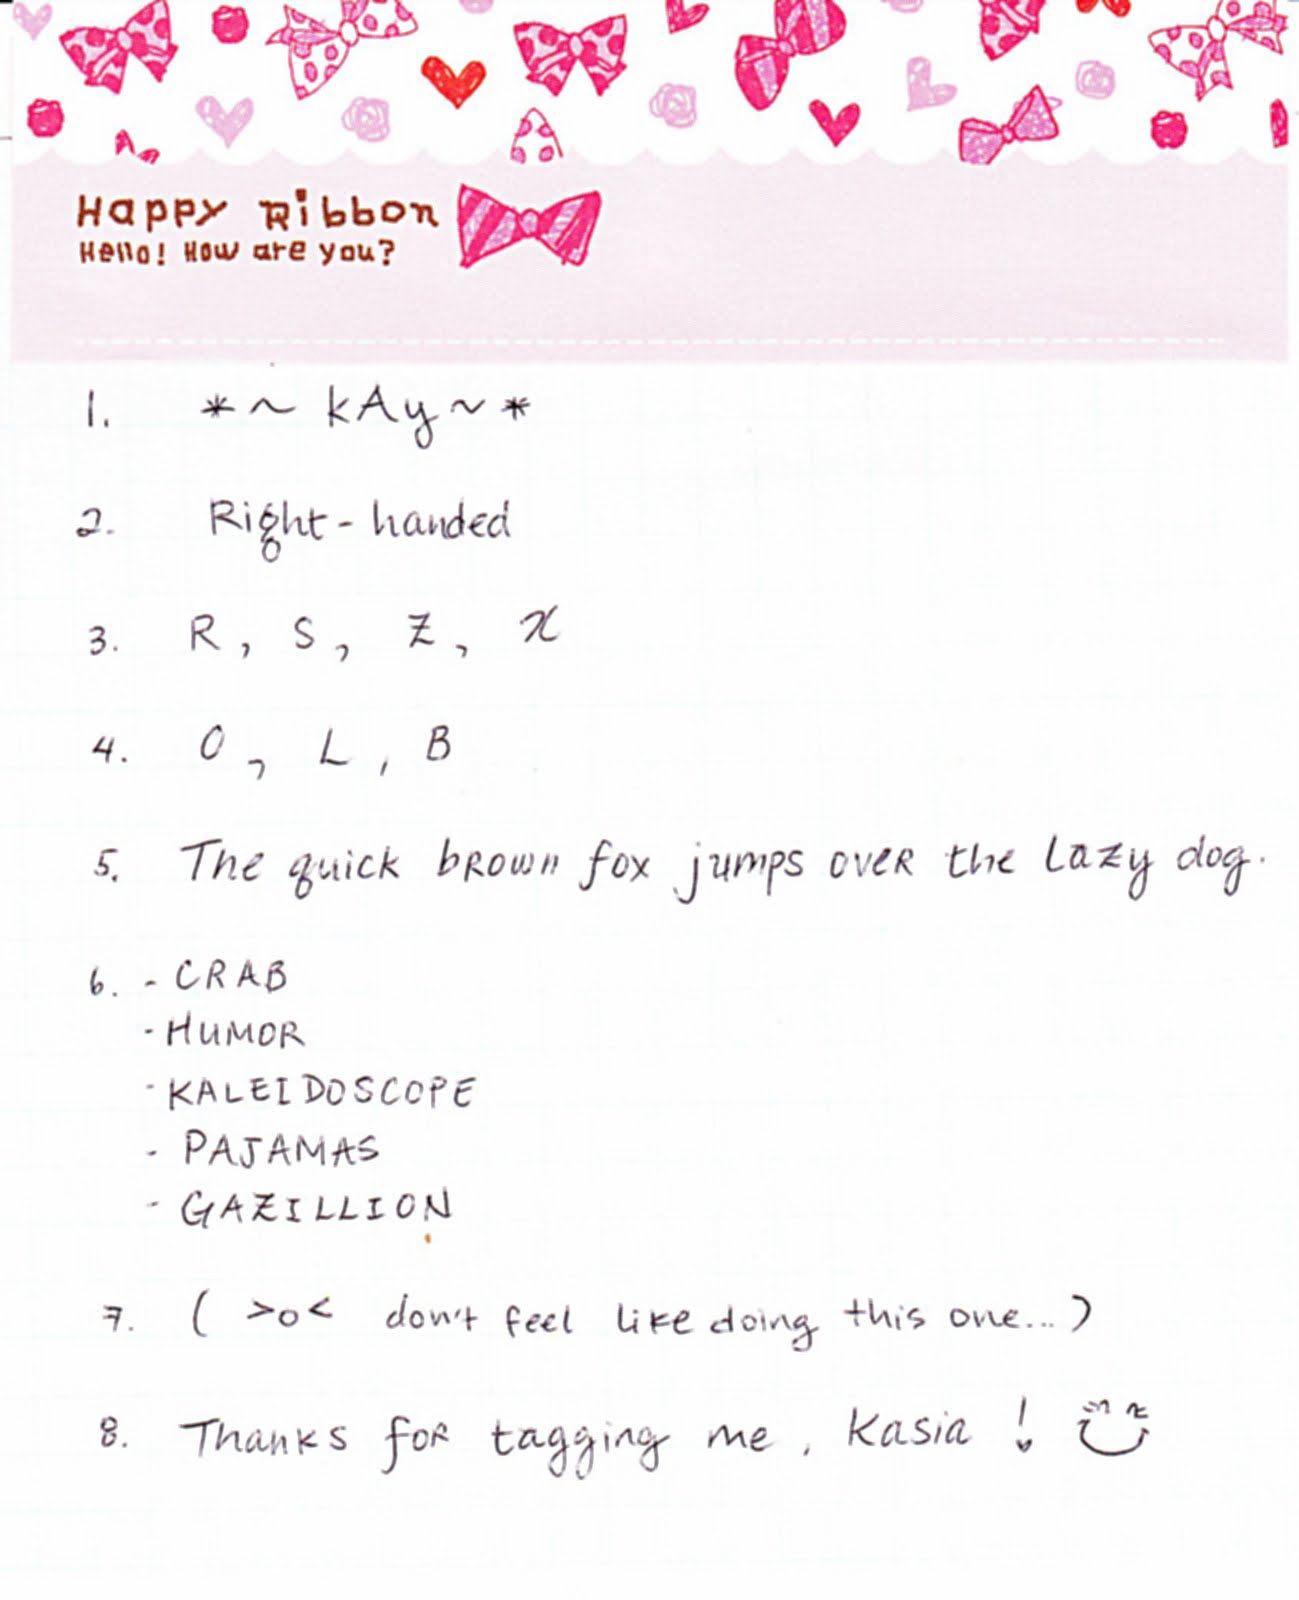 Happy Ribbon
Hello! How are you?
1. *~ kAy ~*
2. Right-handed
3. R, S, Z, X
4. O, L, B
5. The quick bRown fox jumps oveR the Lazy dog.
6. - CRAB
- HUMOR
- KALEIDOSCOPE
- PAJAMAS
- GAZILLION
7. ( >o< don't feel like doing this one... )
8. Thanks foR tagging me, Kasia !